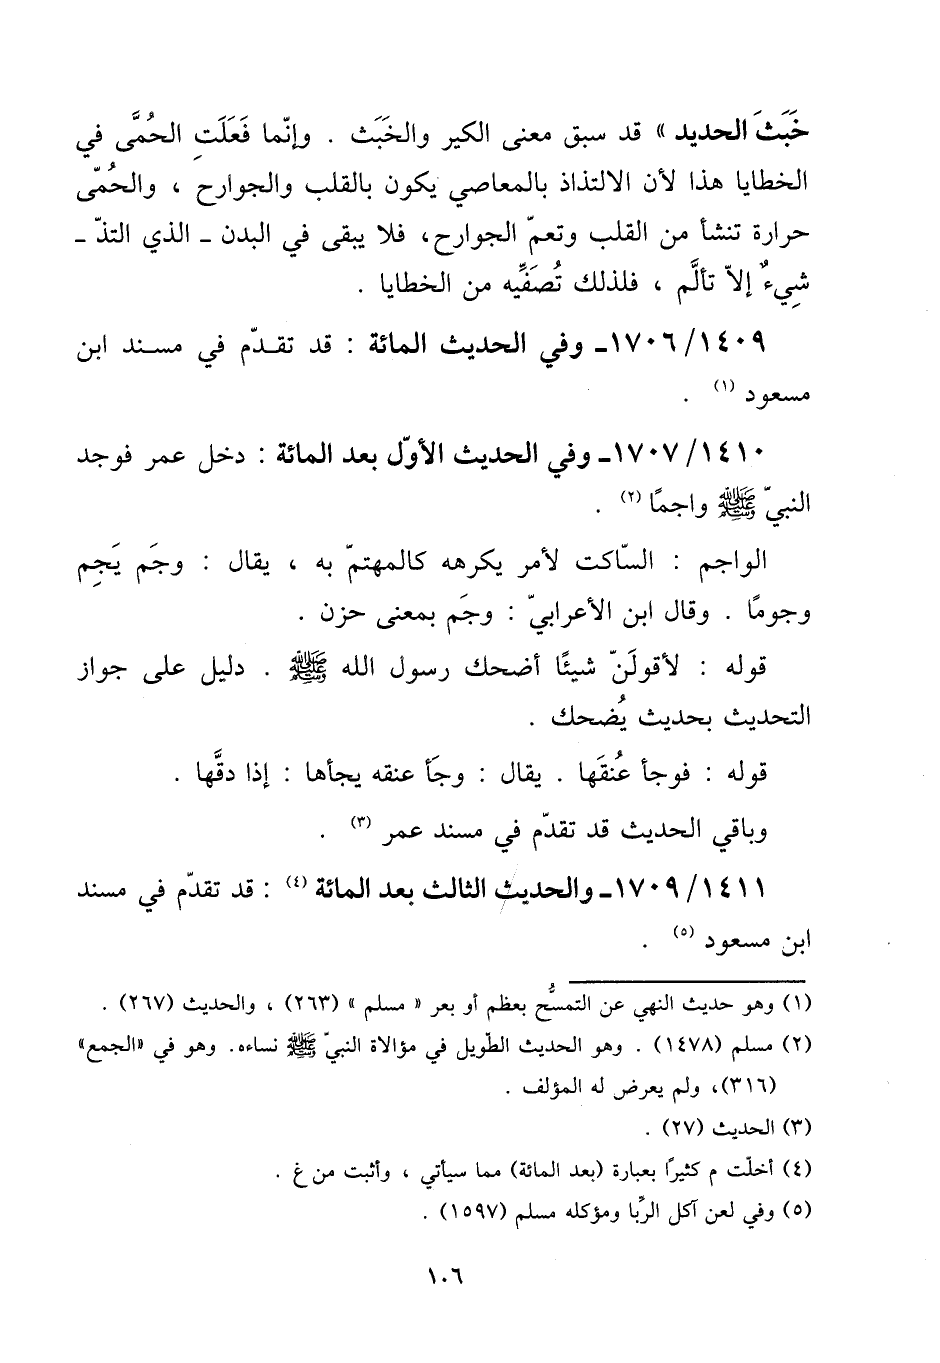 خَبَثَ الحديد » قد سبق معنى الكير والخَبَث . وإنّما فَعَلَتِ الحُمَّى في
الخطايا هذا لأن الالتذاذ بالمعاصي يكون بالقلب والجوارح ، والحُمّى
حرارة تنشأ من القلب وتعمّ الجوارح، فلا يبقى في البدن ـ الذي التذّ ـ
شيءٌ إلاّ تألَّم ، فلذلك تُصَفِّيه من الخطايا .
١٧٠٦/١٤٠٩ـ وفي الحديث المائة : قد تقـدّم في مسـند ابن
مسعود (١) .
١٧٠٧/١٤١٠ـ وفي الحديث الأوّل بعد المائة : دخل عمر فوجد
النبيّ ﷺ واجمًا (٢) .
الواجم : السّاكت لأمر يكرهه كالمهتمّ به ، يقال : وجَم يَجِم
وجومًا . وقال ابن الأعرابيّ : وجَم بمعنى حزن .
قوله : لأقولَنّ شيئًا أضحك رسول الله ﷺ . دليل على جواز
التحديث بحديث يُضحك .
قوله : فوجأ عُنقَها . يقال : وجَأ عنقه يجأها : إذا دقَّها .
وباقي الحديث قد تقدّم في مسند عمر (٣) .
١٧٠٩/١٤١١ـ والحديث الثالث بعد المائة (٤) : قد تقدّم في مسند
ابن مسعود (٥) .
(١) وهو حديث النهي عن التمسُّح بعظم أو بعر « مسلم » (٢٦٣) ، والحديث (٢٦٧) .
(٢) مسلم (١٤٧٨) . وهو الحديث الطّويل في مؤالاة النبيّ ﷺ نساءه. وهو في «الجمع»
(٣١٦)، ولم يعرض له المؤلف .
(٣) الحديث (٢٧) .
(٤) أخلّت م كثيرًا بعبارة (بعد المائة) مما سيأتي ، وأثبت من غ .
(٥) وفي لعن آكل الرِّبا ومؤكله مسلم (١٥٩٧) .
١٠٦